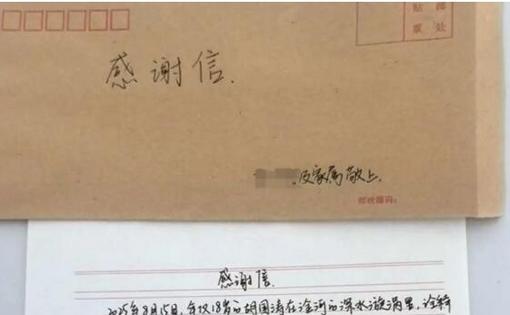 贴 邮
票 处
感谢信.
及家属敬上.
邮政编码:
感谢信.
2025年8月15日,年仅18岁的胡国涛在淦河的深水漩涡里,诠释